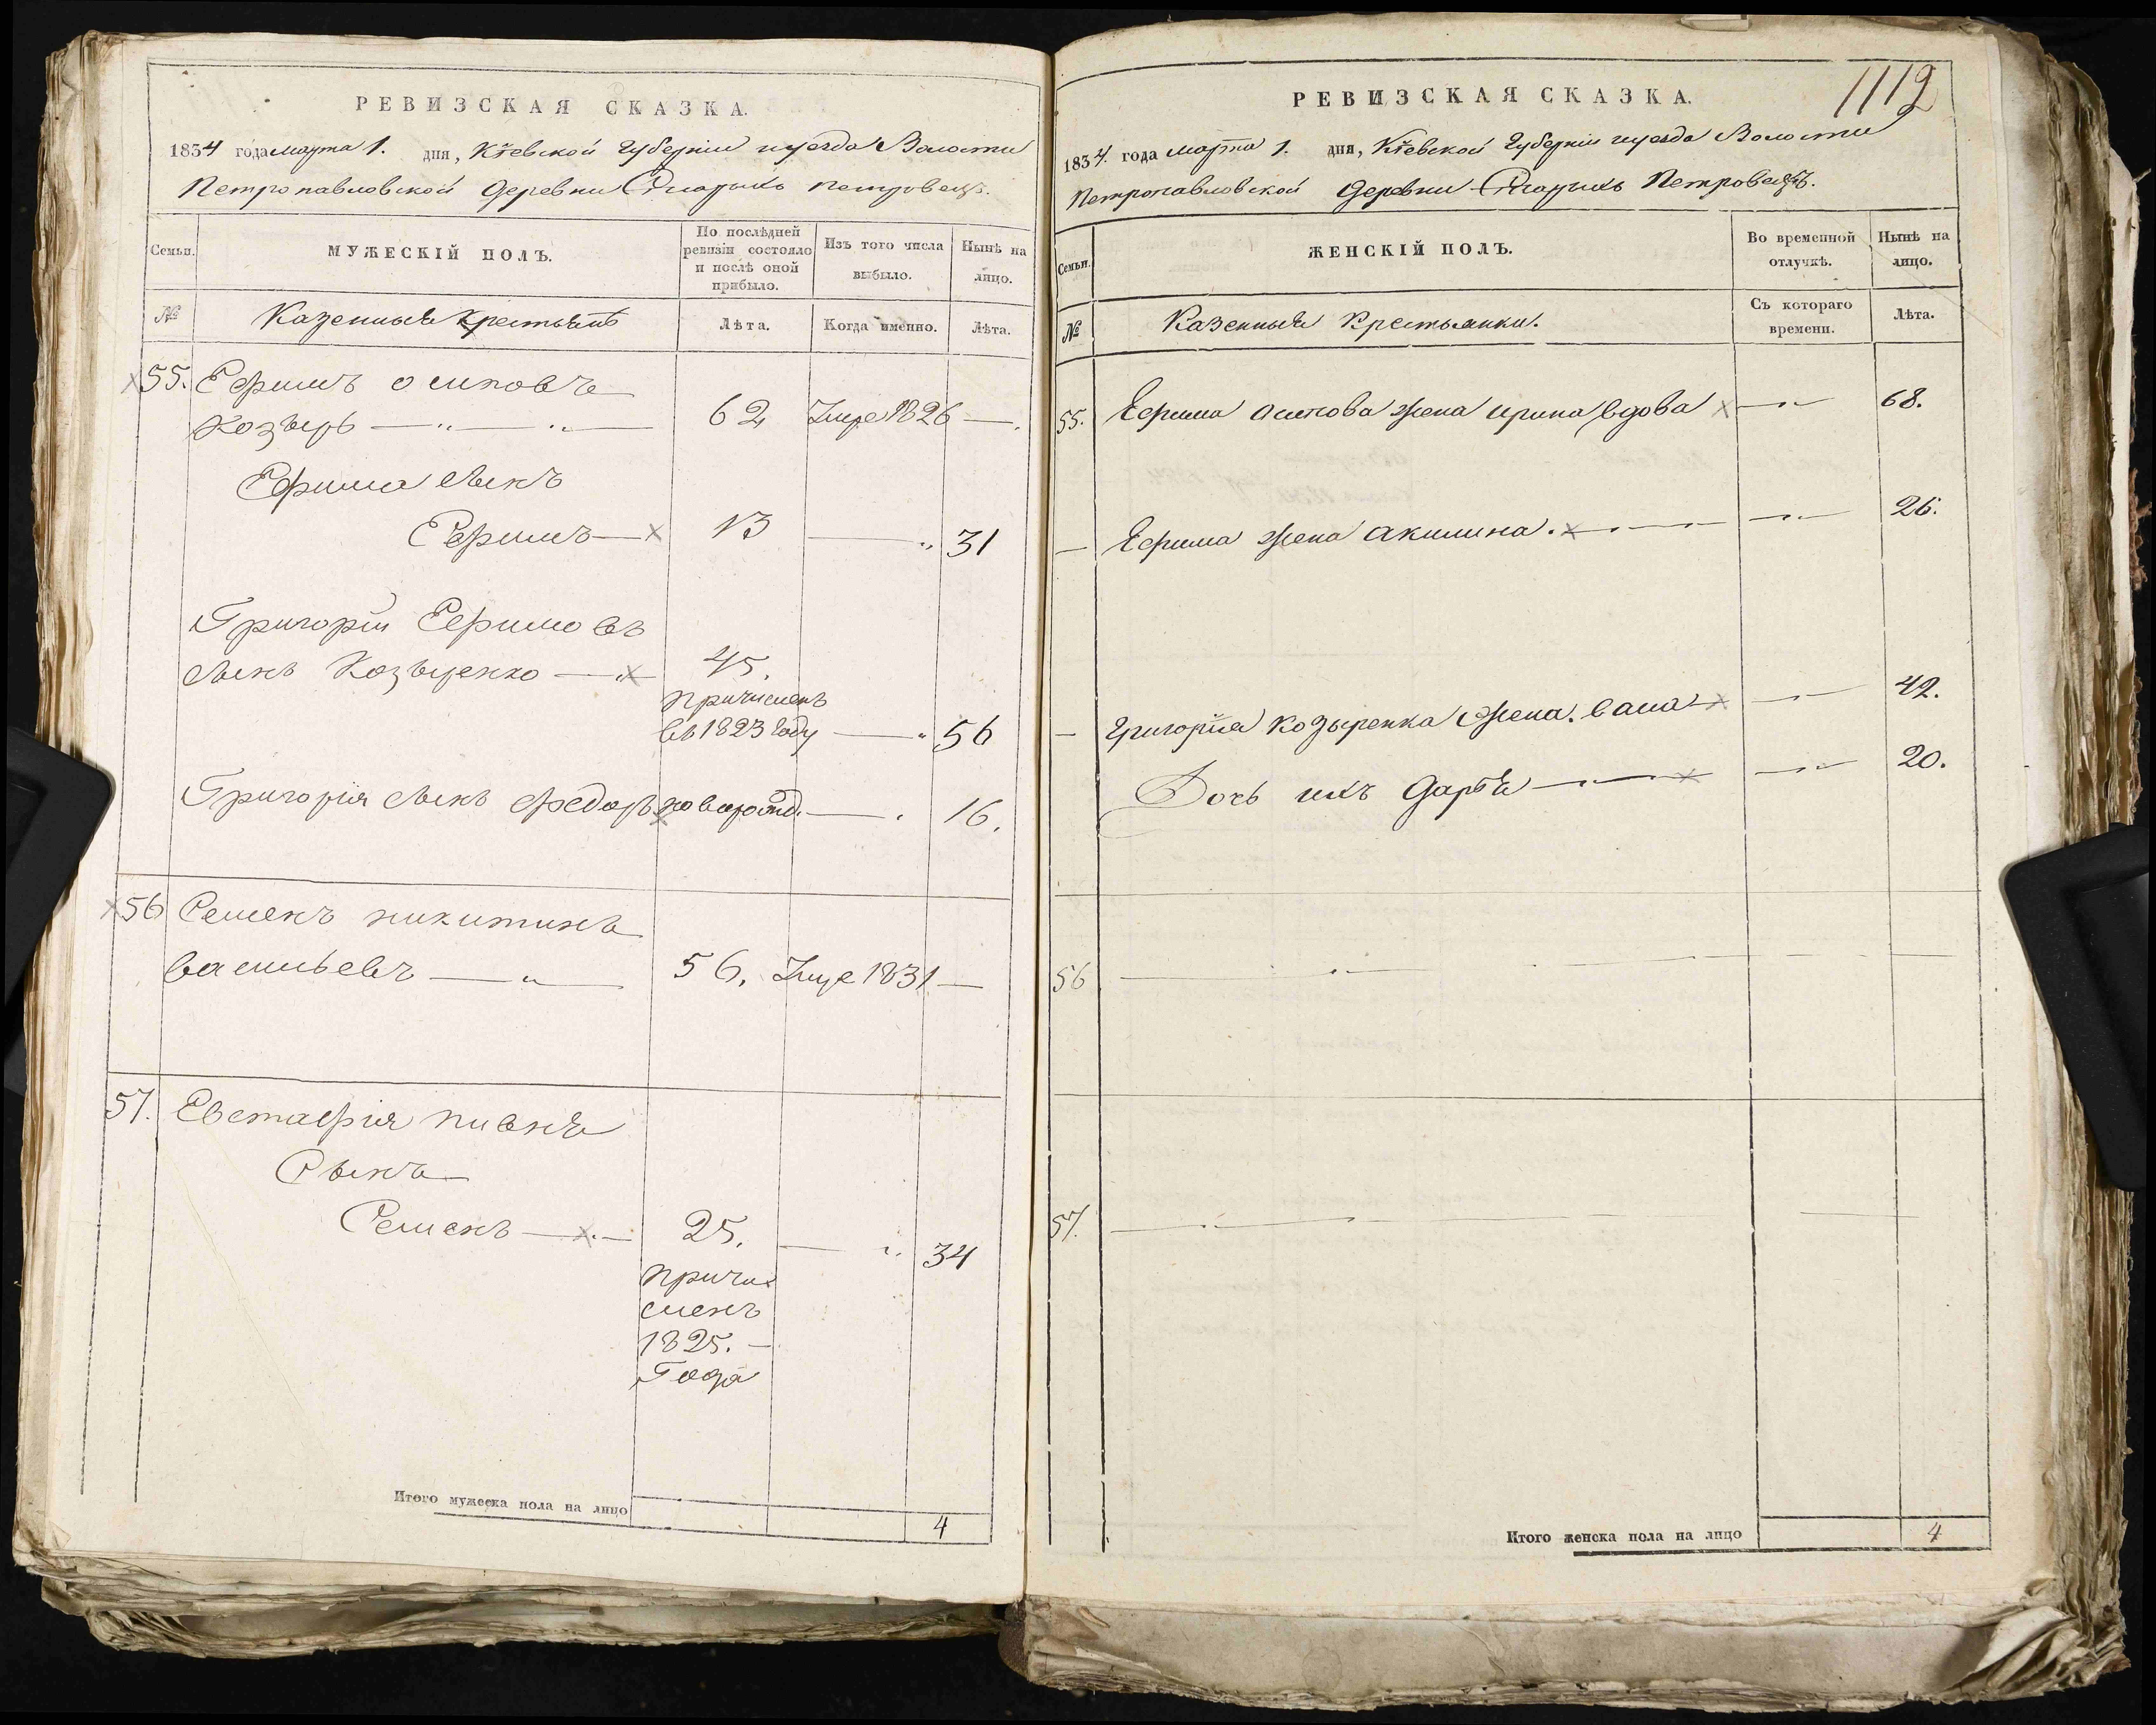 РЕВИЗСКАЯ СКАЗКА.
1834 года марта 1. дня, Кіевской губерніи иуезда Волости
Петропавловской деревни Старыхъ петровецъ.
Семьи.
МУЖЕСКІЙ ПОЛЪ.
По послѣдней ревизіи состояло и послѣ оной прибыло.
Изъ того числа выбыло.
Нынѣ на лицо.
№
Казенныя крестьянѣ
Лѣта.
Когда именно.
Лѣта.
55. Ефимъ осиповъ
Козырь 62 Умре 1826
Ефима сынъ
Ефимъ 13 31
Григорій Ефимовъ
сынъ Козыренко 45.
причисленъ
въ 1823 году 56
Григорія сынъ федоръ новорожд. 16.
56 Семенъ никитинъ
васильевъ 56. Умре 1831
57. Евстафія пивня
Сынъ
Семенъ 25. 34
причи
сленъ
1825.
Года
Итого мужеска пола на лицо 4
1112
РЕВИЗСКАЯ СКАЗКА.
1834. года марта 1. дня, Кіевской Губерніи иуезда Волости
Петропавловской деревни Старыхъ Петровецъ.
Семьи.
ЖЕНСКІЙ ПОЛЪ.
Во временной отлучкѣ.
Нынѣ на лицо.
№
Казенныя Крестьянки.
Съ котораго времени.
Лѣта.
55. Ефима осипова жена ирина вдова 68.
Ефима жена акилина. 26.
Григорія Козыренка жена. васа 42.
Дочь ихъ дарья 20.
56
57.
Итого женска пола на лицо 4